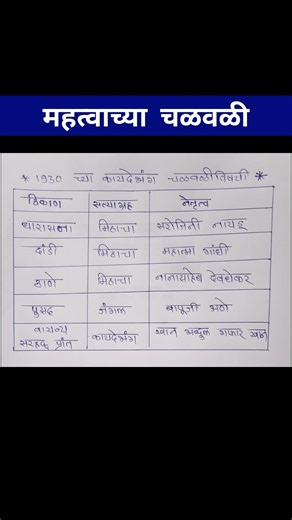 महत्वाच्या चळवळी
* 1930 च्या कायदेभंग चळवळीविषयी *
ठिकाण सत्याग्रह नेतृत्व
धारासना मिठाचा सरोजिनी नायडू
दांडी मिठाचा महात्मा गांधी
ठाणे मिठाचा नानासाहेब देवधेकर
पुसद जंगल बापूजी अणे
वायव्य
सरहद्द प्रांत कायदेभंग खान अब्दुल गफार खान